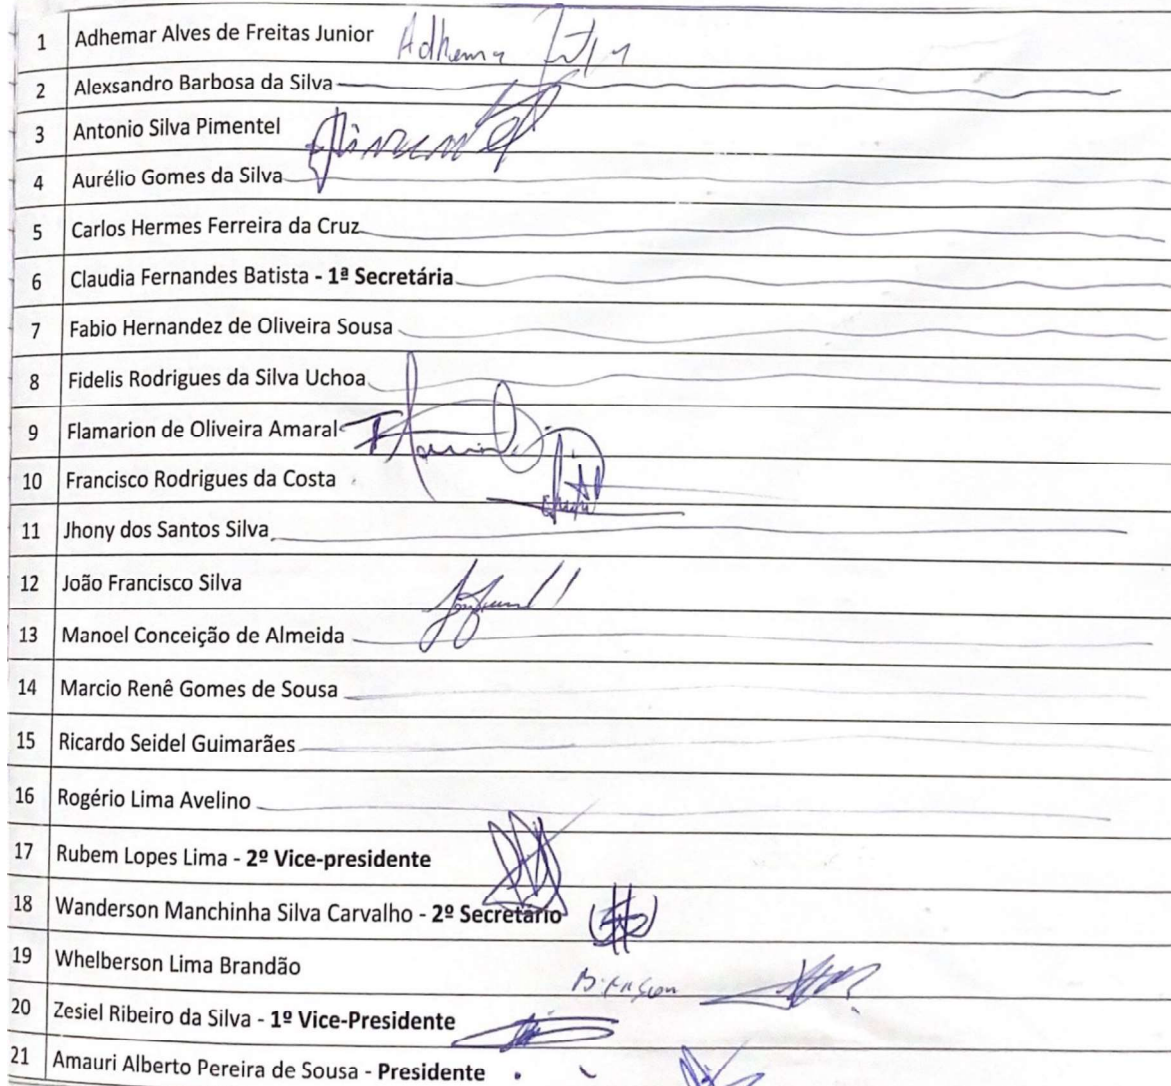 1 Adhemar Alves de Freitas Junior Adhemar
2 Alexsandro Barbosa da Silva
3 Antonio Silva Pimentel
4 Aurélio Gomes da Silva
5 Carlos Hermes Ferreira da Cruz
6 Claudia Fernandes Batista - 1ª Secretária
7 Fabio Hernandez de Oliveira Sousa
8 Fidelis Rodrigues da Silva Uchoa
9 Flamarion de Oliveira Amaral
10 Francisco Rodrigues da Costa
11 Jhony dos Santos Silva
12 João Francisco Silva
13 Manoel Conceição de Almeida
14 Marcio Renê Gomes de Sousa
15 Ricardo Seidel Guimarães
16 Rogério Lima Avelino
17 Rubem Lopes Lima - 2º Vice-presidente
18 Wanderson Manchinha Silva Carvalho - 2º Secretário
19 Whelberson Lima Brandão
20 Zesiel Ribeiro da Silva - 1º Vice-Presidente
21 Amauri Alberto Pereira de Sousa - Presidente